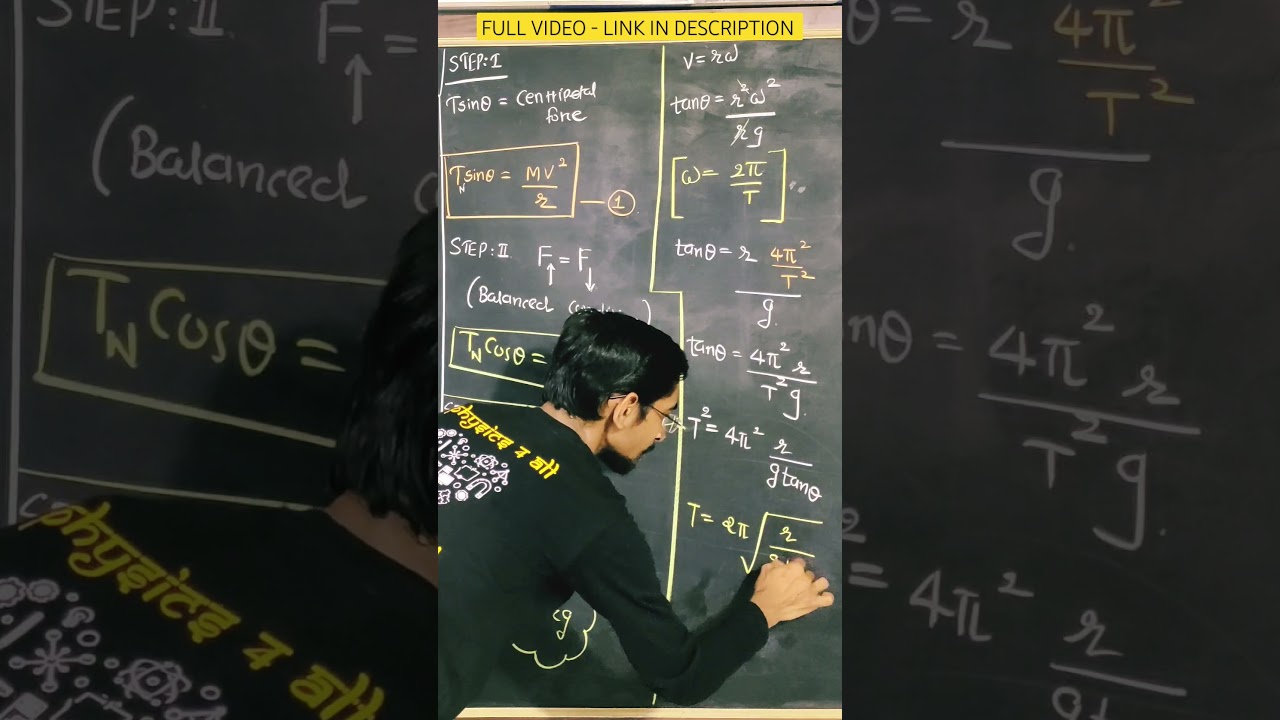 FULL VIDEO - LINK IN DESCRIPTION
STEP: I
Tsinθ = Centripetal
force
T_N sinθ = MV²/r — ①
STEP: II
F↑ = F↓
(Balanced
T_N Cosθ =
physics 4 all
g
V = rω
tanθ = r²ω²/rg
[ω = 2π/T]
tanθ = r 4π²/T² / g.
tanθ = 4π² r / T² g.
T² = 4π² r / g tanθ
T = 2π √ r